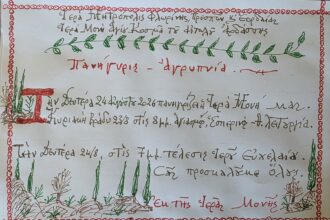 Ἱερὰ Μητρόπολις Φλωρίνης, Πρεσπῶν & Ἐορδαίας
Ἱερὰ Μονὴ Ἁγίου Κοσμᾶ τοῦ Αἰτωλοῦ
Πανήγυρις - Ἀγρυπνία
Τὴν Δευτέρα 24 Αὐγούστου 2026 πανηγυρίζει ἡ Ἱερὰ Μονή μας.
Κυριακὴ βράδυ 23/8 στὶς 8 μμ. Ἁγιασμός, Ἑσπερινός, Θ. Λειτουργία.
Τὴν Δευτέρα 24/8, στὶς 7 μμ. τέλεσις Ἱεροῦ Εὐχελαίου.
Σᾶς προσκαλοῦμε ὅλους.
Ἐκ τῆς Ἱερᾶς Μονῆς